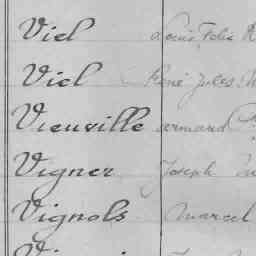 Viel Louis Felix
Viel René Jules
Vieuville Armand
Vigner Joseph
Vignols Marcel